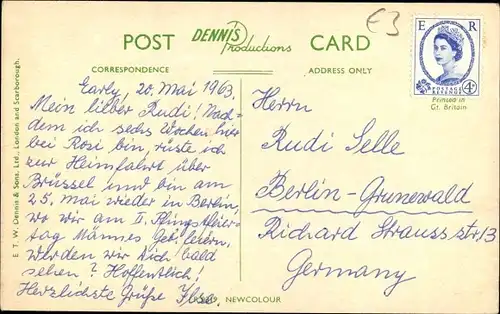 £3
POST DENNIS Productions CARD
E R
POSTAGE REVENUE
4D
Printed in
Gt. Britain
CORRESPONDENCE
ADDRESS ONLY
E. T. W. Dennis & Sons, Ltd., London and Scarborough.
Early, 20. Mai 1963.
Mein lieber Rudi! Nach-
dem ich sechs Wochen hier
bei Rosi bin, rüste ich
zur Heimfahrt über
Brüssel und bin am
25. Mai wieder in Berlin,
wo wir am II. Pfingstfeier-
tag Männes Geb. feiern.
Werden wir Dich bald
sehen? Hoffentlich!
Herzlichste Grüße Ilse.
NEWCOLOUR
Herrn
Rudi Selle
Berlin-Grunewald
Richard Strauss str 13
Germany